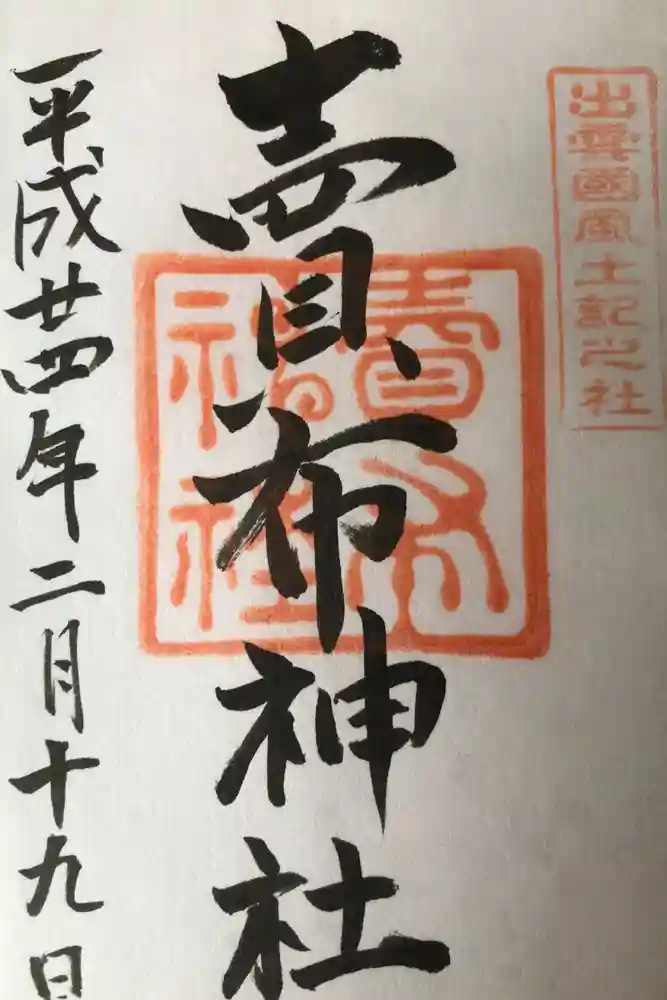 出雲國風土記之社
賣布神社
賣布神社
平成廿四年二月十九日